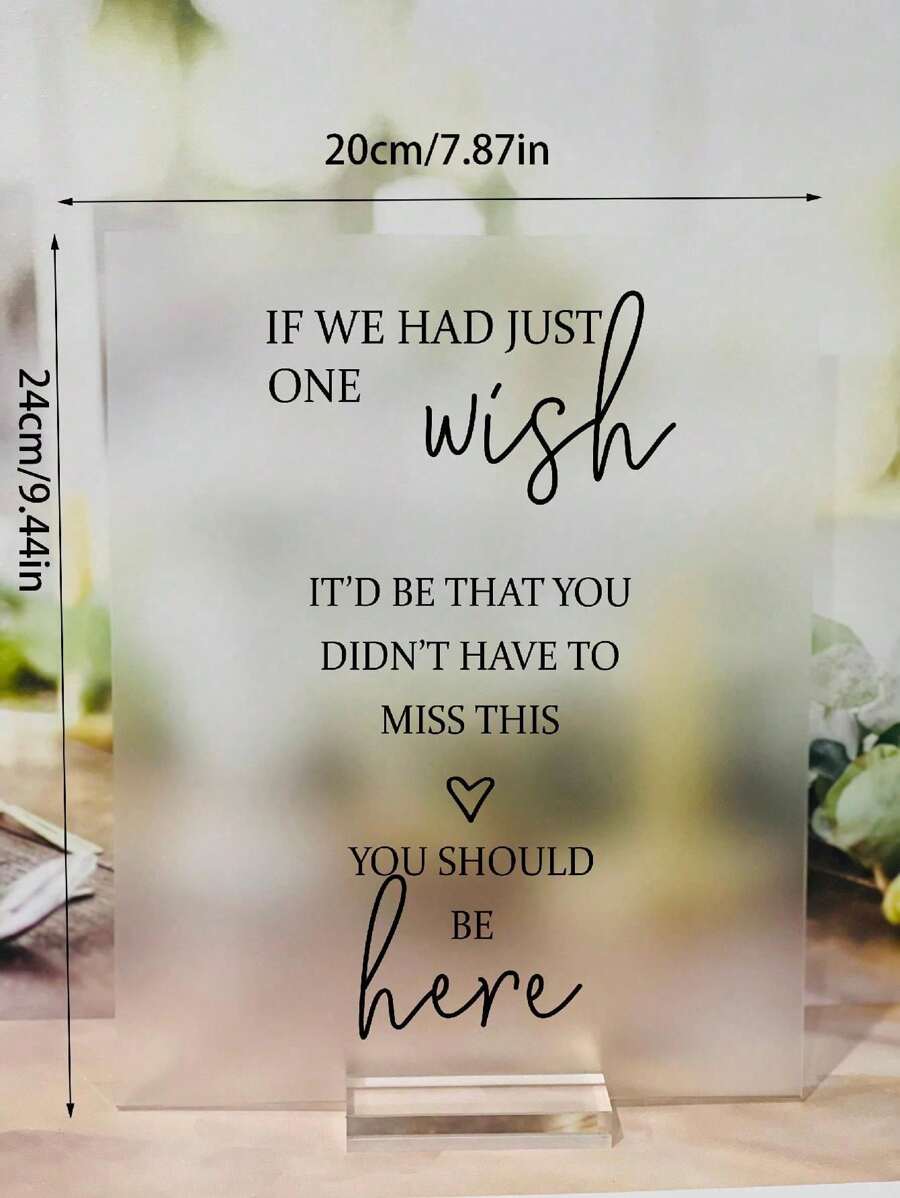 20cm/7.87in
24cm/9.44in
IF WE HAD JUST
ONE wish
IT'D BE THAT YOU
DIDN'T HAVE TO
MISS THIS
YOU SHOULD
BE
here